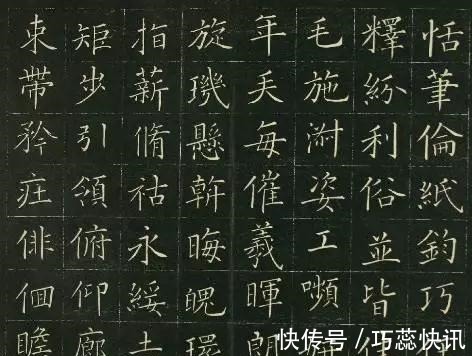 恬筆倫紙鈞巧
釋紛利俗並皆
毛施淑姿工嚬
年矢每催羲暉朗
旋璣懸斡晦魄環
指薪脩祜永綏吉
矩步引領俯仰廊
束帶矜莊俳佪瞻
快传号 / 巧蕊快讯